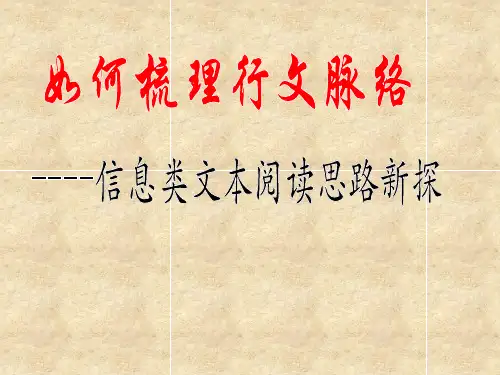 如何梳理行文脉络
----信息类文本阅读思路新探